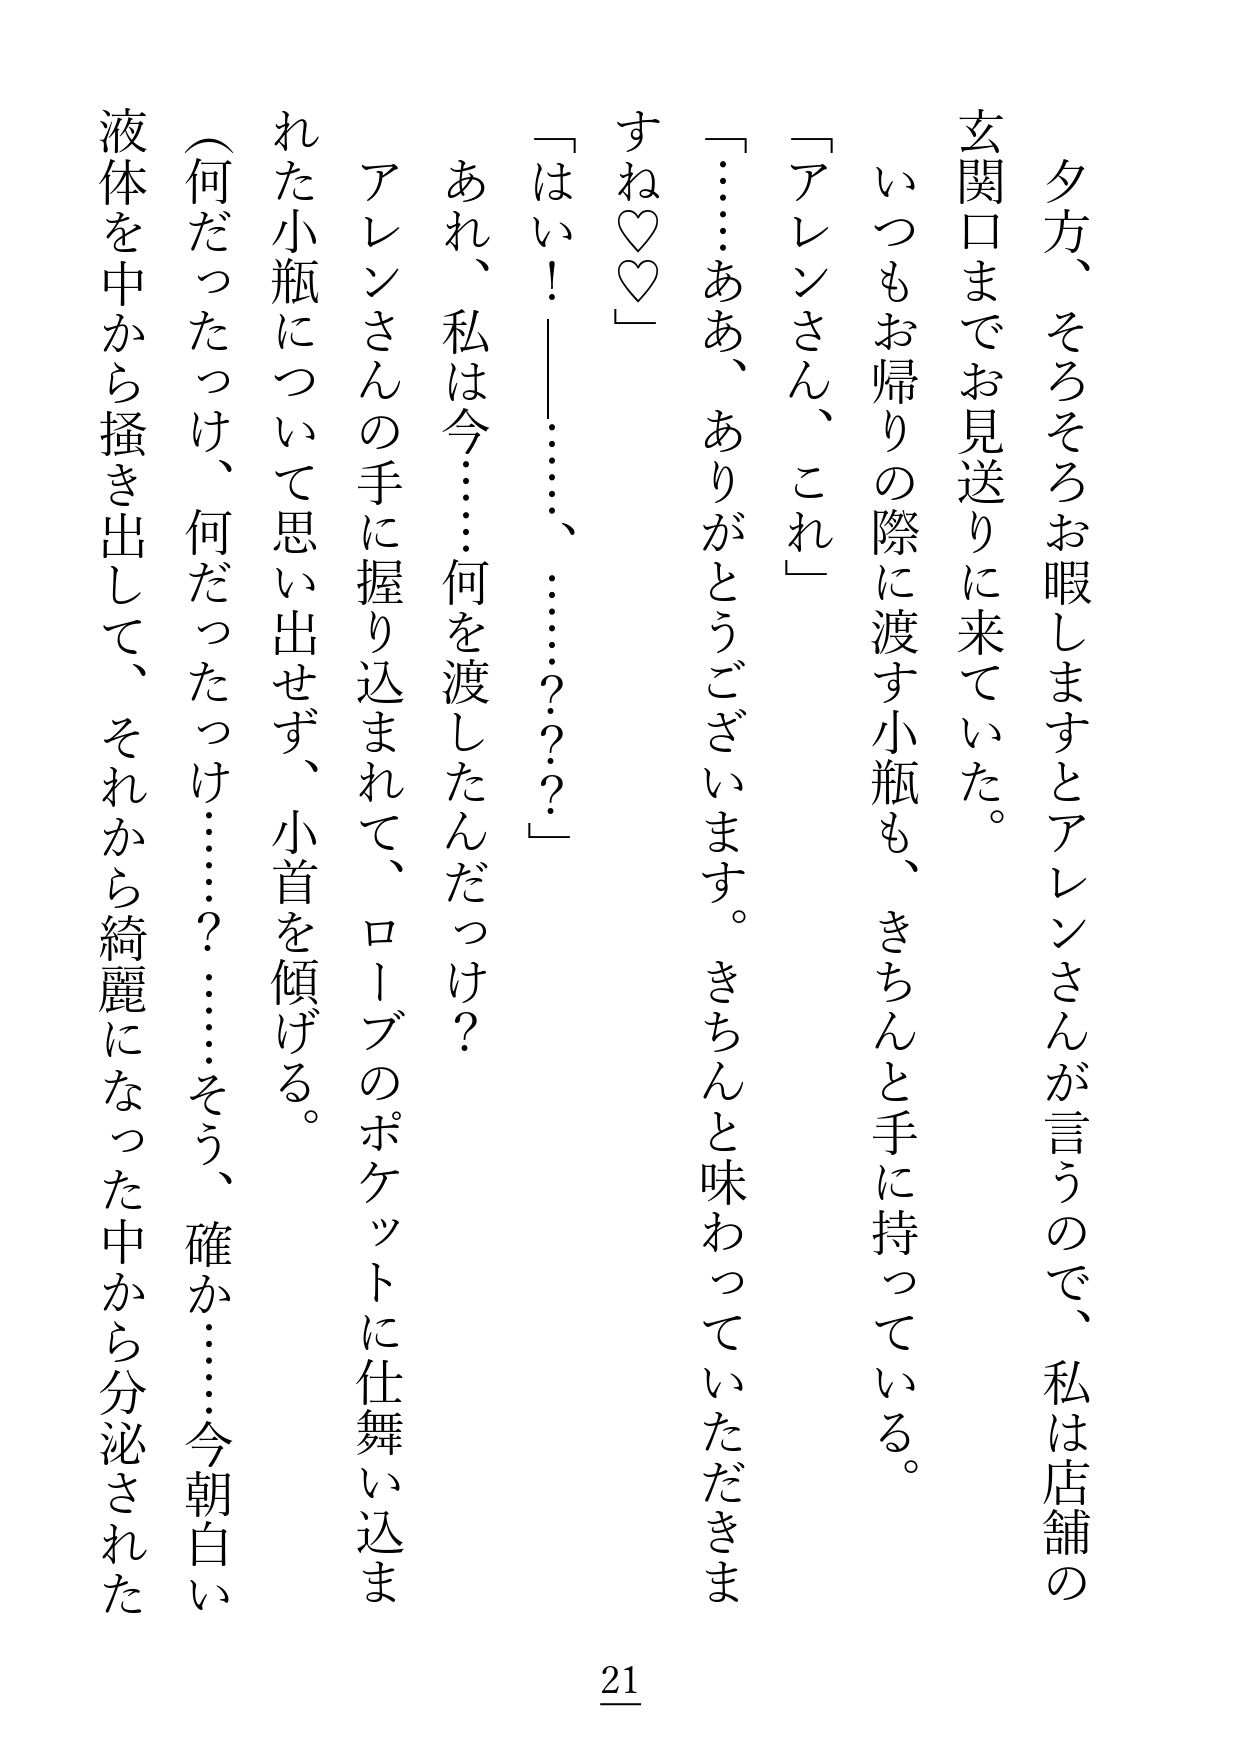 夕方、そろそろお暇しますとアレンさんが言うので、私は店舗の
玄関口までお見送りに来ていた。
いつもお帰りの際に渡す小瓶も、きちんと手に持っている。
「アレンさん、これ」
「……ああ、ありがとうございます。きちんと味わっていただきま
すね♡♡」
「はい！――……、……？？？」
あれ、私は今……何を渡したんだっけ？
アレンさんの手に握り込まれて、ローブのポケットに仕舞い込ま
れた小瓶について思い出せず、小首を傾げる。
（何だったっけ、何だったっけ……？……そう、確か……今朝白い
液体を中から掻き出して、それから綺麗になった中から分泌された
21